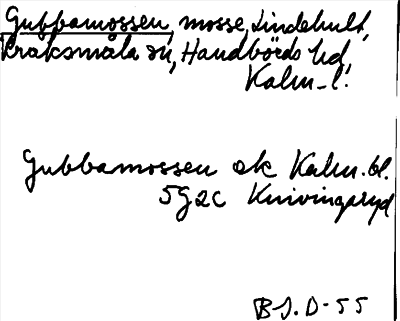 Gubbamossen, mosse, Lindehult,
Kråksmåla sn, Handbörds hd,
Kalm. l.
Gubbamossen ek Kalm. bl.
5g2c Knivingaryd
B J. D-55